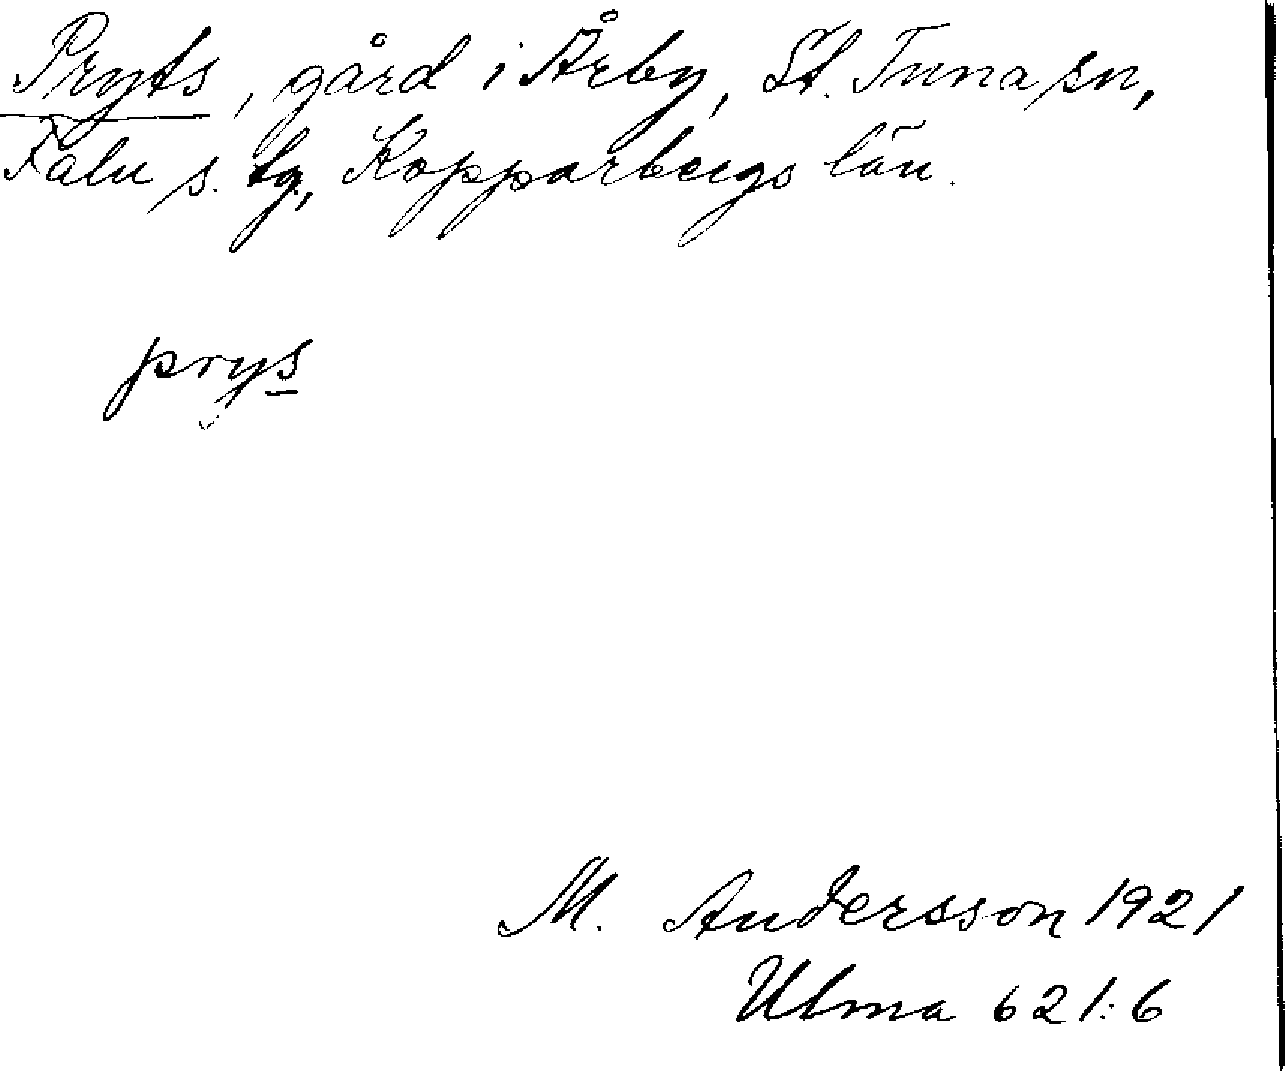 Pryts, gård i Årby, St. Tuna sn,
Falu s. tg, Kopparbergs län.
prys
M. Andersson 1921
Ulma 621:6